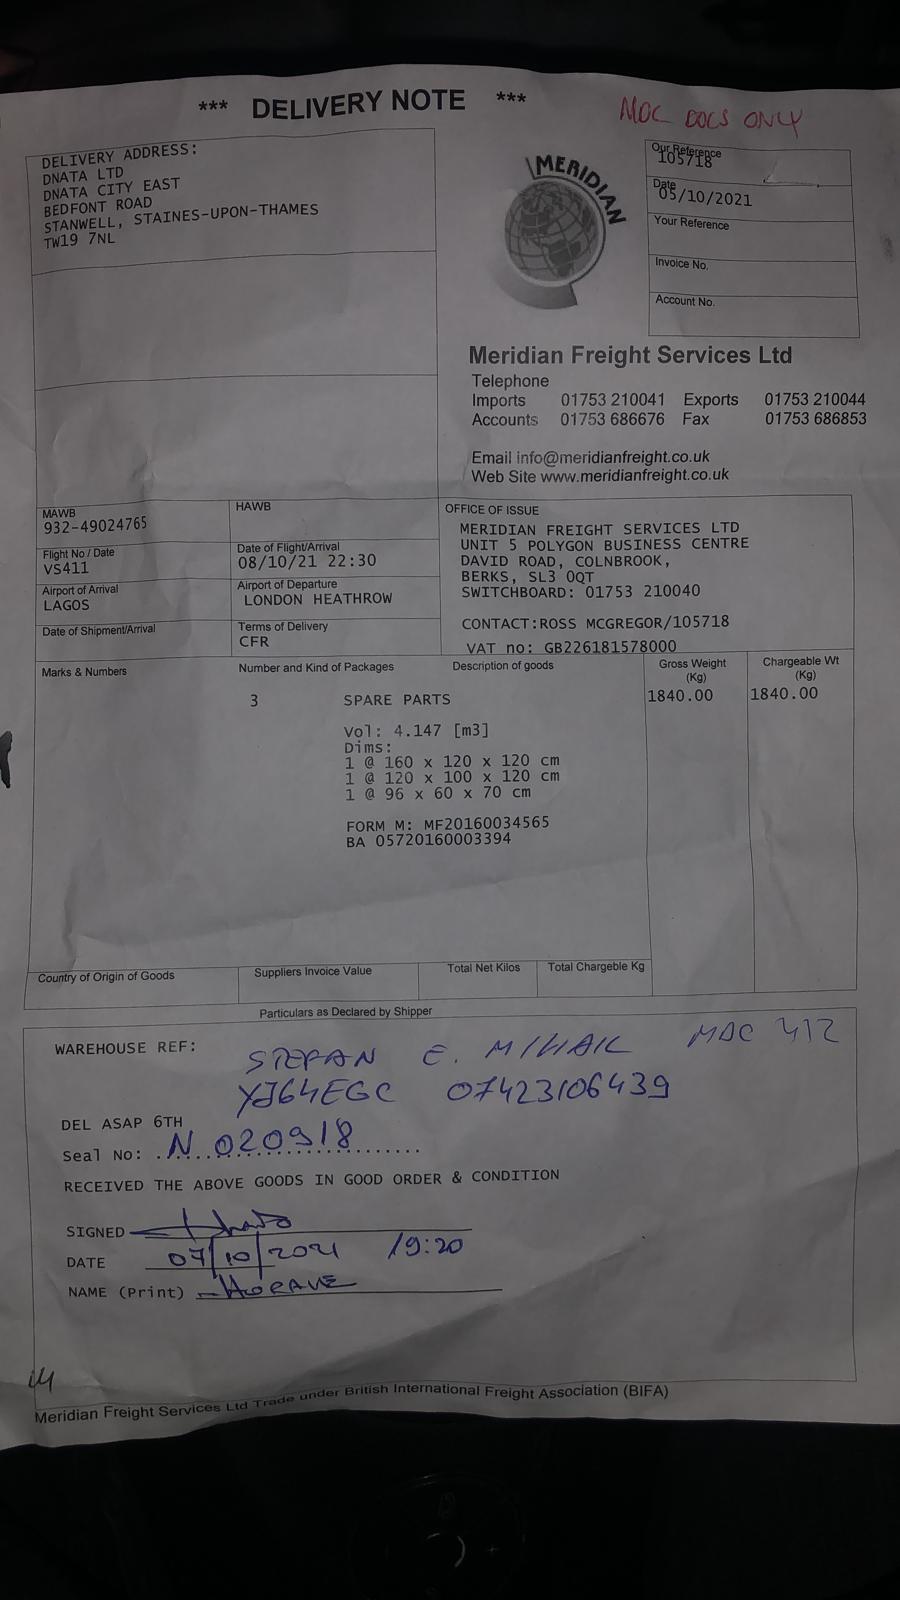 *** DELIVERY NOTE ***
MDC DOCS ONLY
DELIVERY ADDRESS:
DNATA LTD
DNATA CITY EAST
BEDFONT ROAD
STANWELL, STAINES-UPON-THAMES
TW19 7NL
MERIDIAN
Our Reference
105718
Date
05/10/2021
Your Reference
Invoice No.
Account No.
Meridian Freight Services Ltd
Telephone
Imports 01753 210041 Exports 01753 210044
Accounts 01753 686676 Fax 01753 686853
Email info@meridianfreight.co.uk
Web Site www.meridianfreight.co.uk
MAWB
932-49024765
HAWB
Flight No / Date
VS411
Date of Flight/Arrival
08/10/21 22:30
Airport of Arrival
LAGOS
Airport of Departure
LONDON HEATHROW
Date of Shipment/Arrival
Terms of Delivery
CFR
OFFICE OF ISSUE
MERIDIAN FREIGHT SERVICES LTD
UNIT 5 POLYGON BUSINESS CENTRE
DAVID ROAD, COLNBROOK,
BERKS, SL3 0QT
SWITCHBOARD: 01753 210040
CONTACT:ROSS MCGREGOR/105718
VAT no: GB226181578000
Marks & Numbers
Number and Kind of Packages
Description of goods
Gross Weight
(Kg)
Chargeable Wt
(Kg)
3 SPARE PARTS 1840.00 1840.00
Vol: 4.147 [m3]
Dims:
1 @ 160 x 120 x 120 cm
1 @ 120 x 100 x 120 cm
1 @ 96 x 60 x 70 cm
FORM M: MF20160034565
BA 05720160003394
Country of Origin of Goods
Suppliers Invoice Value
Total Net Kilos
Total Chargeble Kg
Particulars as Declared by Shipper
WAREHOUSE REF:
STEFAN E. MIHAIL MDC 412
YJ64EGC 07423106439
DEL ASAP 6TH
Seal No: N 020918
RECEIVED THE ABOVE GOODS IN GOOD ORDER & CONDITION
SIGNED
DATE 07/10/2021 19:20
NAME (Print)
Meridian Freight Services Ltd Trade under British International Freight Association (BIFA)